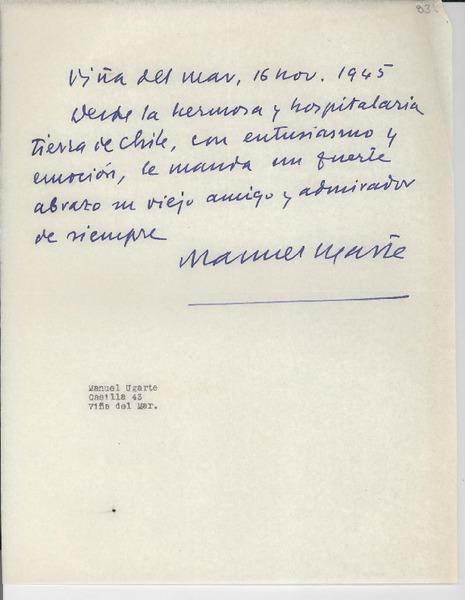 Viña del Mar, 16 nov. 1945
Desde la hermosa y hospitalaria
tierra de Chile, con entusiasmo y
emoción, le manda un fuerte
abrazo su viejo amigo y admirador
de siempre
Manuel Ugarte
Manuel Ugarte
Casilla 43
Viña del Mar.